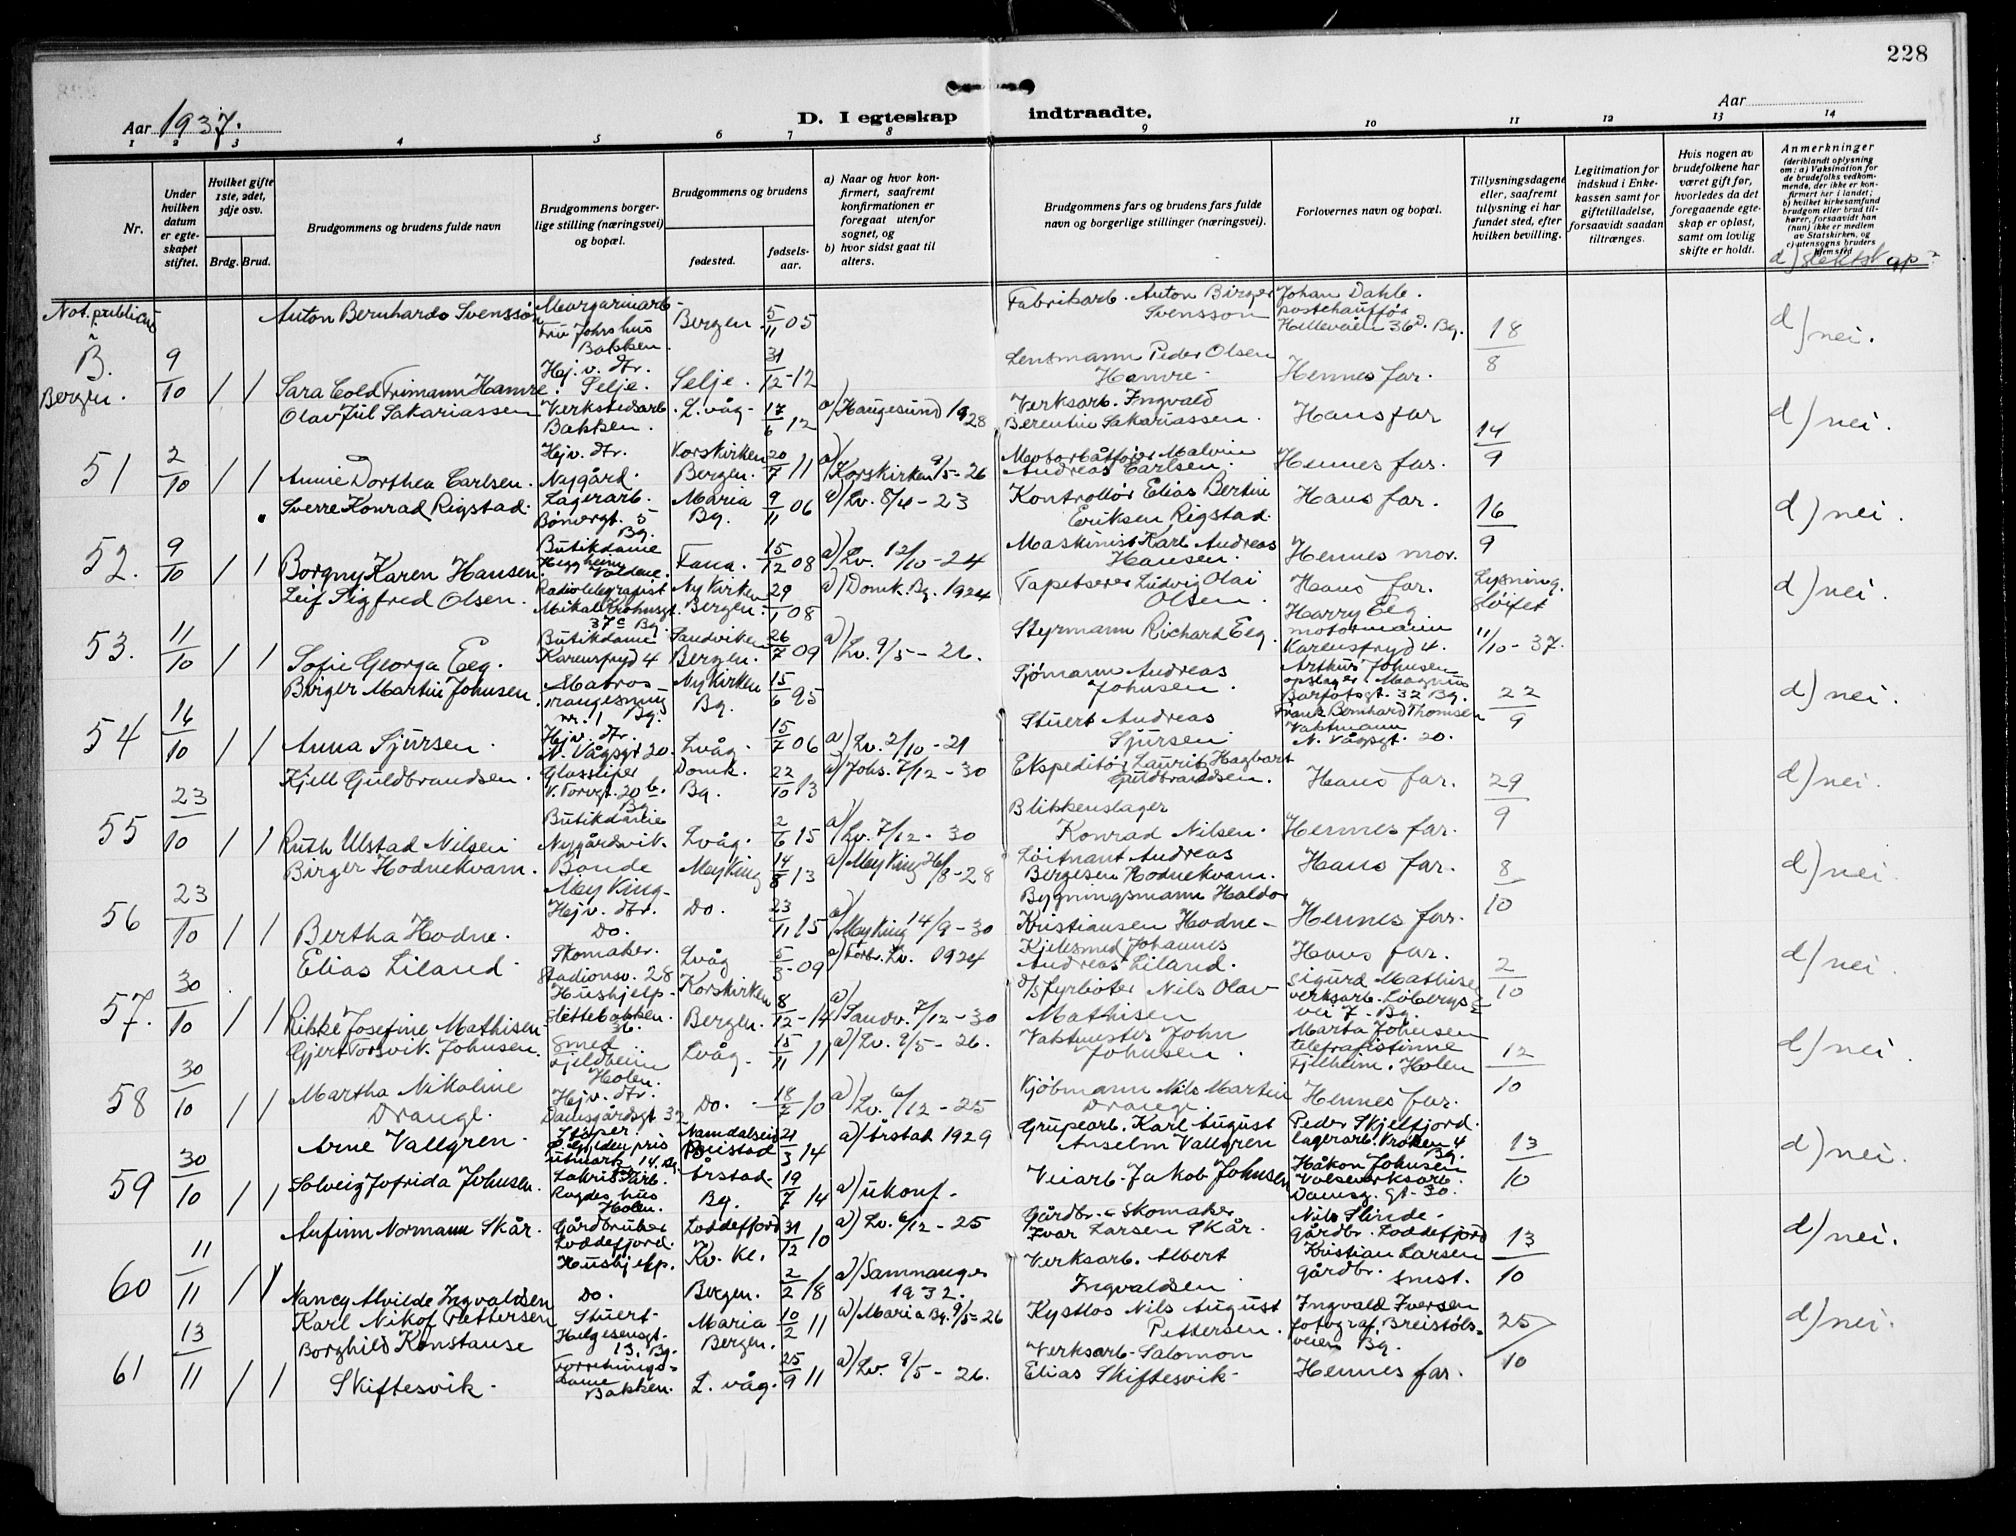 228
Aar 1937.
D. I egteskap indtraadte.
Aar
1 2 3 4 5 6 7 8 9 10 11 12 13 14
Nr.
Under hvilken datum er egteskapet stiftet.
Hvilket gifte 1ste, 2det, 3dje osv.
Brdg. Brud.
Brudgommens og brudens fulde navn
Brudgommens borgerlige stilling (næringsvei) og bopæl.
Brudgommens og brudens
fødested.
fødselsaar.
a) Naar og hvor konfirmert, saafremt konfirmationen er foregaat utenfor sognet, og
b) hvor sidst gaat til alters.
Brudgommens fars og brudens fars fulde navn og borgerlige stillinger (næringsvei).
Forlovernes navn og bopæl.
Tillysningsdagene eller, saafremt tillysning ei har fundet sted, efter hvilken bevilling.
Legitimation for indskud i Enkekassen samt for giftetilladelse, forsaavidt saadan tiltrænges.
Hvis nogen av brudefolkene har været gift før, hvorledes da det foregaaende egteskap er opløst, samt om lovlig skifte er holdt.
Anmerkninger
(deriblandt oplysning om: a) Vaksination for de brudefolks vedkommende, der ikke er konfirmert her i landet; b) hvilket kirkesamfund brudgom eller brud tilhører, forsaavidt han (hun) ikke er medlem av Statskirken, og c) utensogns bruders hjemsted
d) slektskap?
Not. publicus
B.
Bergen.
9/10 1 1
Anton Bernhards Svensson
Margarinarb.
Bakken.
Bergen. 5/11 05
Fabrikarb. Anton Birger Svensson
Johan Dahle.
postchauffør
Helleveien 36d. Bg.
18/8
d) nei.
Sara Cold Frimann Hamre.
Hej. v. dtr.
Selje.
Selje. 31/12 - 12
Lensmann Peder Olsen Hamre.
Hennes far.
51 2/10 1 1
Olav Jul Sakariassen
Verkstedsarb.
Bakken.
L.våg. 17/6 12
a) Haugesund 1928
Verksarb. Ingvald
Berentin Sakariassen.
Hans far
14/9
d) nei.
Annie Dorthea Carlsen.
Hejv. dtr.
Nygård.
Korskirken
Bergen. 20/7 11
a) Korskirken 9/5 - 26
Motorbåtfører Malvin
Andreas Carlsen.
Hennes far.
52. 9/10 1 1
Sverre Konrad Rigstad.
Lagerarb.
Bønergt. 5
Bg.
Maria
Bg. 9/11 06
a) Lv. 8/4 - 23
Kontrollør Elias Bertin
Eriksen Rigstad.
Hans far.
16/9
d) nei.
Borgny Karen Hansen
Butikdame
Fana. 15/12 08
a) Lv. 12/10 - 24
Maskinist Karl Andreas
Hansen.
Hennes mor.
53. 11/10 1 1
Leif Sigfred Olsen.
Radiotelegrafist
Mikal Krohnsgt.
37c Bg.
Ny Kirken
Bergen. 29/1 08
a) Domk. Bg. 1924
Tapetserer Ludvig Olai
Olsen.
Hans far.
Lysning.
sløifet
11/10 - 37.
d) nei.
Sofie Georga Eeg.
Butikdame
Karensfryd 4
Sandviken
Bergen. 26/7 09
a) Lv. 9/5 - 26.
Styrmann Richard Eeg.
Harry Eeg
motormann
Karensfryd 4.
54 16/10 1 1
Birger Martin Johnsen.
Matros
nr. 1 Bg.
Ny Kirken
Bg. 15/6 95
Sjømann Andreas
Johnsen.
Arthur Johnsen
opslager Magnus
Barfotsgt. 32 Bg.
22/9
d) nei.
Anna Sjursen.
Hejv. dtr.
N. Vågsgt 20.
Lvåg. 15/7 06
a) Lv. 2/10 - 21
Stuert Andreas
Sjursen
Frank Bernhard Thomsen
Vaktmann
N. Vågsgt. 20.
55 23/10 1 1
Kjell Guldbrandsen.
Glassliper
V. Torvgt. 20 b.
Bg.
Domk.
Bg. 22/10 13
a) Johs. 7/12 - 30
Ekspeditør Laurits Hagbart
Guldbrandsen.
Hans far.
29/9
d) nei.
Ruth Ulstad Nilsen
Butikdame
Nygårdsvik.
Lvåg. 2/6 15
a) Lv. 7/12 - 30
Blikkenslager
Konrad Nilsen.
Hennes far.
56 23/10 1 1
Birger Hodnekvam.
Bonde
Mey King
Mey King 14/8 13
a) Mey King 26/8 - 28
Løitnant Andreas
Bergesen Hodnekvam.
Hans far.
8/10
d) nei.
Bertha Hodne.
Hejv. dtr.
Do.
Do. 23/11 15
a) Mey King 14/9 - 30
Bygningsmann Haldor
Kristiansen Hodne
Hennes far.
57. 30/10 1 1
Elias Liland
Skomaker.
Stadionsv. 28
Lvåg 5/3 - 09
a) Forbr. Lv. 1924
Kjelesmed Johannes
Andreas Liland.
Hans far.
2/10
d) nei.
Rikke Josefine Mathisen
Hushjelp
Slettebakken.
36.
Korskirken
Bergen. 8/12 - 14
a) Sandv. 7/12 - 30
d/s fyrbøter Nils Olav
Mathisen
Sigurd Mathisen
verksarb. Løbergs
vei 7. Bg.
58 30/10 1 1
Gjert Torsvik Johnsen.
Smed
Fjeldheim
Holen.
Lvåg. 15/11 11
a) Lv. 9/5 - 26.
Vaktmester John
Johnsen.
Marta Johnsen
telegrafistinne
Fjelheim. Holen
12/10
d) nei.
Martha Nikoline
Drange.
Hejv. dtr.
Damsgårdsgt 32
Do. 18/5 10
a) Lv. 6/12 - 25
Kjøbmann Nils Martin
Drange.
Hennes far.
59 30/10 1 1
Arne Vallgren.
Støper.
14. Bg.
Namdalseid
Beistad 21/3 14
a) Årstad 1929
Grupearb. Karl August
Anselm Vallgren
Peder Skjelfjord.
lagerarb. Kroken 4
Bg.
13/10
d) nei.
Solveig Jofrida Johnsen.
Holen.
Årstad
Bg. 19/7 14
a) ukonf.
Veiarb. Jakob Johnsen
Håkon Johnsen
Valseverksarb.
Damsg. gt. 30.
60 11/11 1 1
Anfinn Normann Skår.
Gårdbruker
Loddefjord.
Loddefjord
Kv. kl. 31/12 10
a) Lv. 6/12 - 25
Gårdbr. & skomaker
Ivar Larsen Skår.
Nils Slinde.
Gårdbr. Loddefjord
13/10
d) nei.
Nancy Alvilde Ingvaldsen
Hushjelp.
Do.
Bergen. 2/2 18
a) Samnanger
1932.
Verksarb. Albert
Ingvaldsen
Kristian Larsen
gårdbr. smst.
61 13/11 1 1
Karl Nikof Pettersen
Stuert
Helgesensgt.
13. Bg.
Maria
Bergen. 10/2 11
a) Maria Bg. 9/5 - 26
Kystlos Nils August
Pettersen.
Ingvald Iversen
fotograf. Breistølsveien
Bg.
25/10
d) nei.
Borghild Konstanse
Skiftesvik.
Forretningsdame
Bakken.
L. våg. 25/9 11
a) Lv. 9/5 - 26.
Verksarb. Salomon
Elias Skiftesvik
Hennes far.